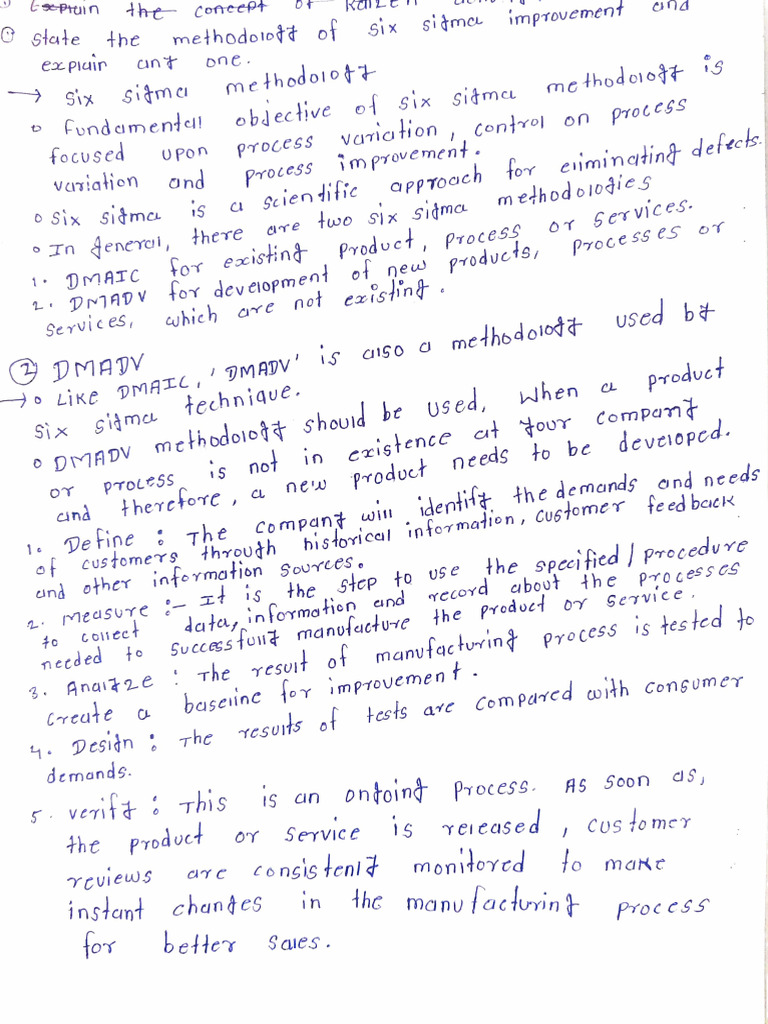 Explain the concept of Kaizen
① State the methodology of six sigma improvement and
explain any one.
→ Six sigma methodology
○ Fundamentall objective of six sigma methodology is
focused upon process variation, control on process
variation and process improvement.
○ Six sigma is a scientific approach for eliminating defects.
○ In general, there are two six sigma methodologies
1. DMAIC for existing product, process or services.
2. DMADV for development of new products, processes or
services, which are not existing.
② DMADV
→ ○ Like DMAIC, 'DMADV' is also a methodology used by
six sigma technique.
○ DMADV methodology should be used, when a product
or process is not in existence at your company
and therefore, a new product needs to be developed.
1. Define : The company will identify the demands and needs
of customers through historical information, customer feedback
and other information sources.
2. Measure :- It is the step to use the specified / procedure
to collect data, information and record about the processes
needed to successfully manufacture the product or service.
3. Analyze : The result of manufacturing process is tested to
create a baseline for improvement.
4. Design : The results of tests are compared with consumer
demands.
5. Verify : This is an ongoing process. As soon as,
the product or service is released, customer
reviews are consistenly monitored to make
instant changes in the manufacturing process
for better sales.